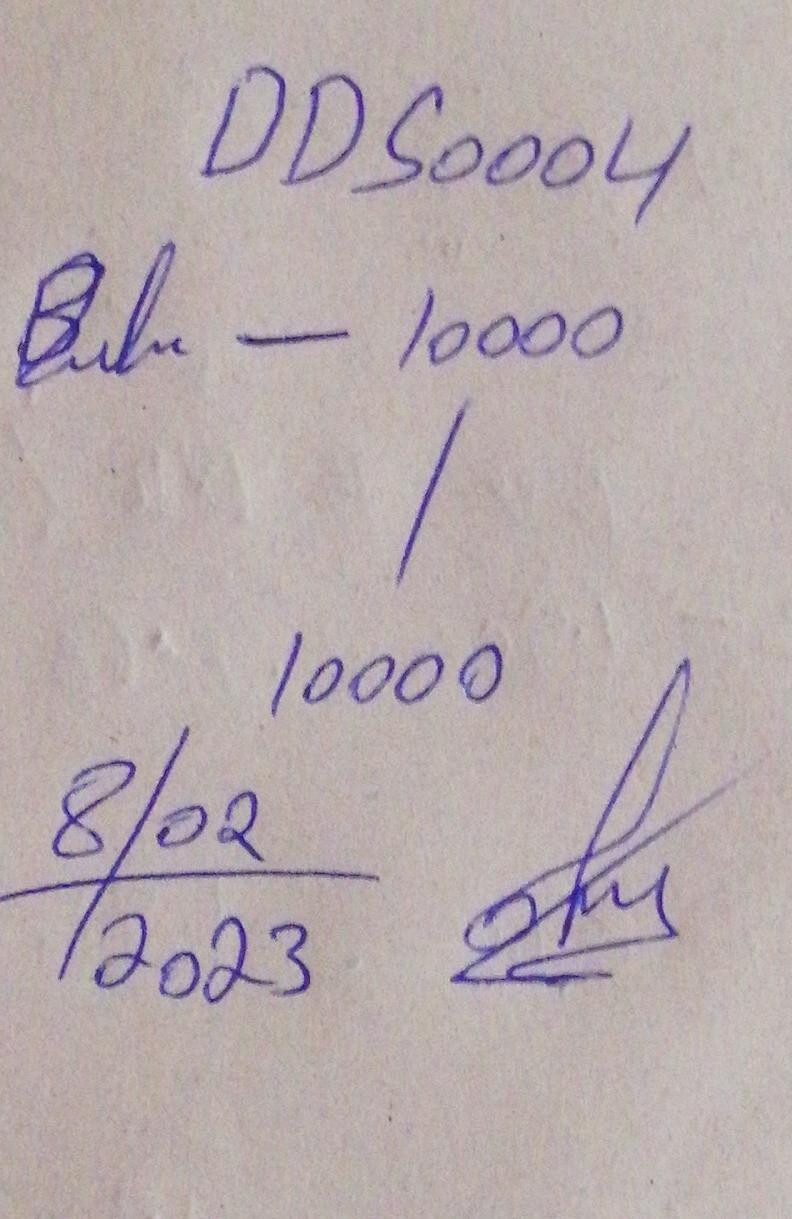 DDS0004
— 10000
/
10000
8/02
/2023